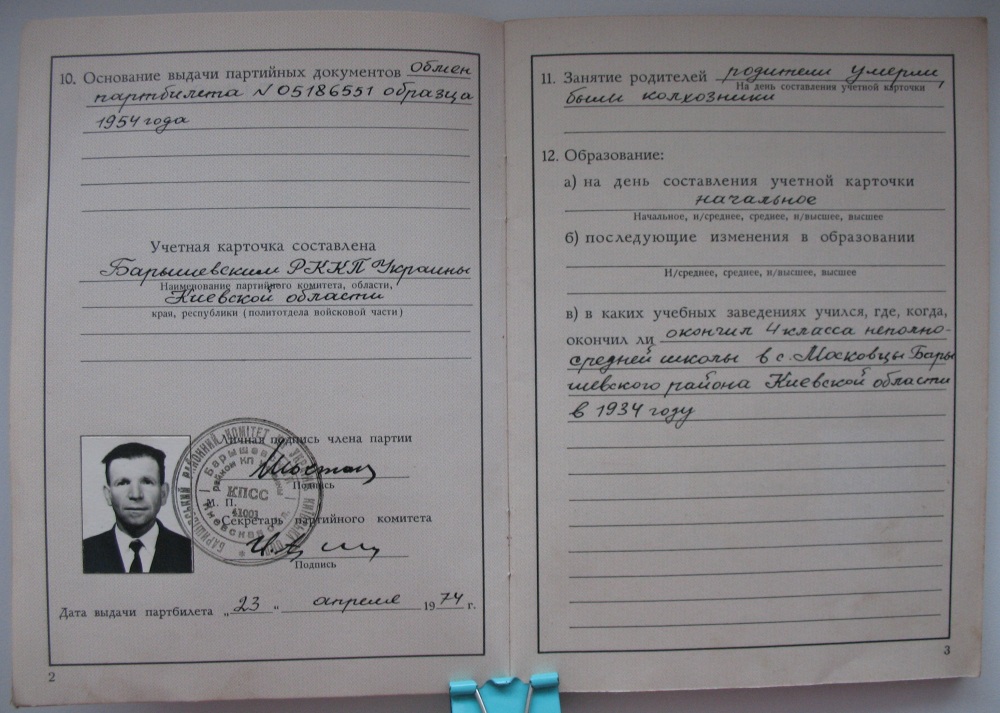 10. Основание выдачи партийных документов Обмен
партбилета N 05186551 образца
1954 года
Учетная карточка составлена
Барышевским РККП Украины
Наименование партийного комитета, области,
Киевской области
края, республики (политотдела войсковой части)
Личная подпись члена партии
Подпись
М. П.
Секретарь партийного комитета
Подпись
КПСС
41001
Дата выдачи партбилета „23“ апреля 1974 г.
2
11. Занятие родителей родители умерли,
На день составления учетной карточки
были колхозники
12. Образование:
а) на день составления учетной карточки
начальное
Начальное, н/среднее, среднее, н/высшее, высшее
б) последующие изменения в образовании
Н/среднее, среднее, н/высшее, высшее
в) в каких учебных заведениях учился, где, когда,
окончил ли окончил 4 класса неполно-
средней школы в с. Московцы Бары
шевского района Киевской области
в 1934 году
3